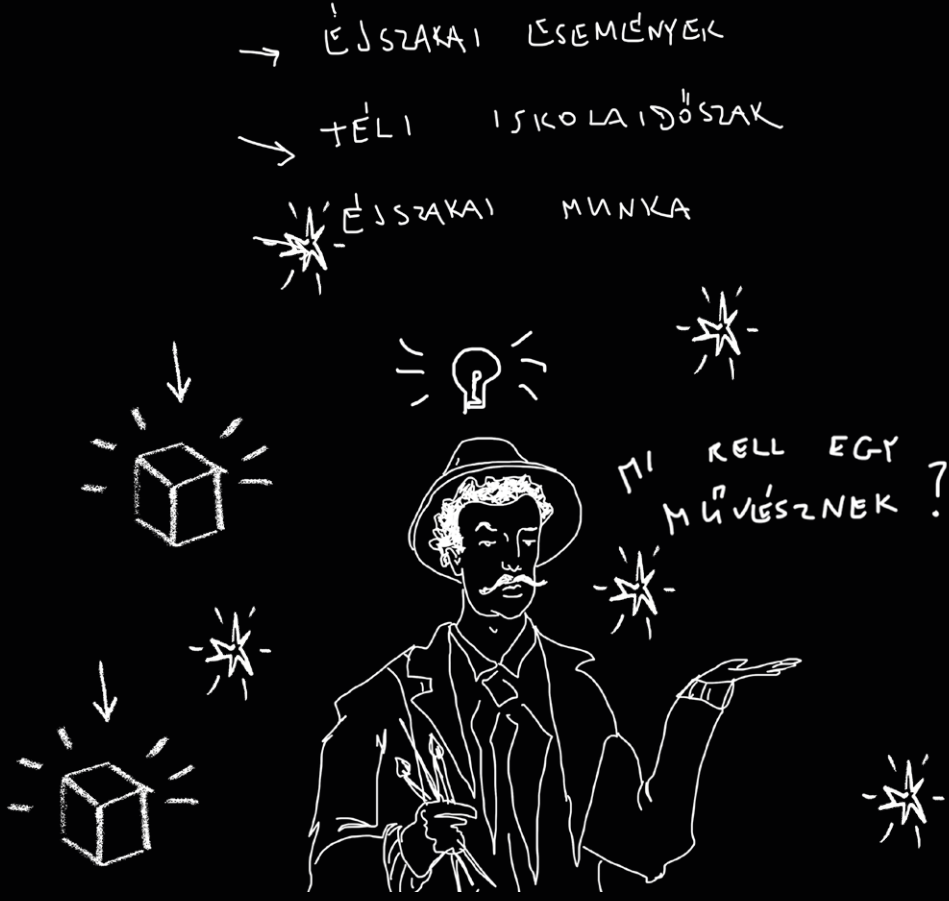 → ÉJSZAKAI ESEMÉNYEK
→ TÉLI ISKOLAIDŐSZAK
ÉJSZAKAI MUNKA
MI KELL EGY
MŰVÉSZNEK?